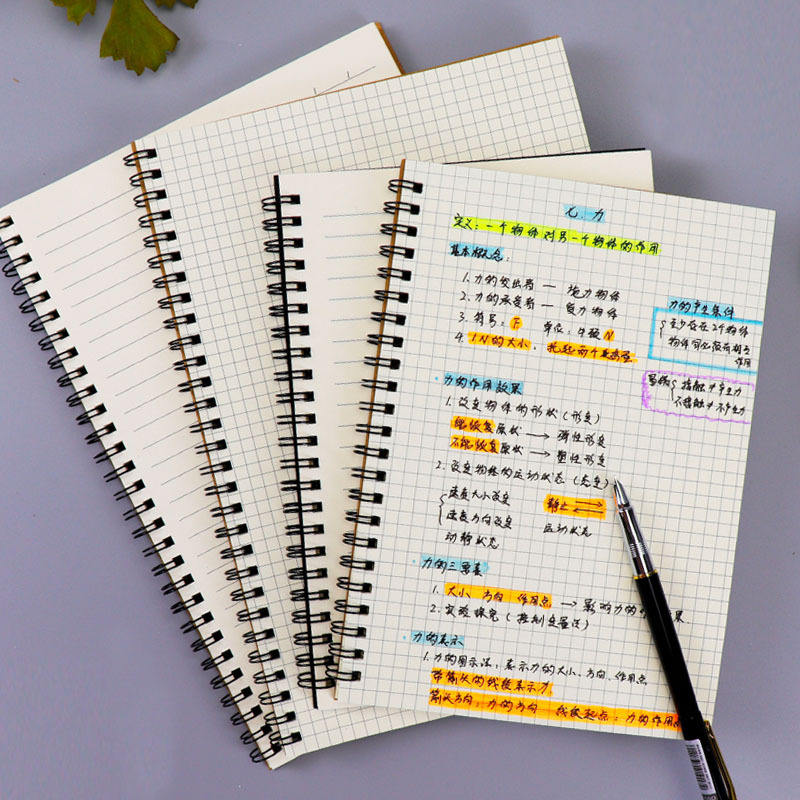 七 力
定义：一个物体对另一个物体的作用
基本概念：
1.力的发出者 — 施力物体
2.力的承受者 — 受力物体
3.符号：F 单位：牛顿 N
4.1N的大小：托起两个鸡蛋
力的产生条件
至少存在2个物体
物体间必须有相互
作用
易错 接触≠产生力
不接触≠不产生力
力的作用效果
1.改变物体的形状（形变）
能恢复原状 → 弹性形变
不能恢复原状 → 塑性形变
2.改变物体的运动状态（态变）
速度大小改变
速度方向改变
动静状态
静止
运动状态
力的三要素
1.大小 方向 作用点 → 影响力的 果
2.实验探究（控制变量法）
力的表示
1.力的图示法：表示力的大小、方向、作用点
带箭头的线段表示力
箭头方向：力的方向 线段起点：力的作用点